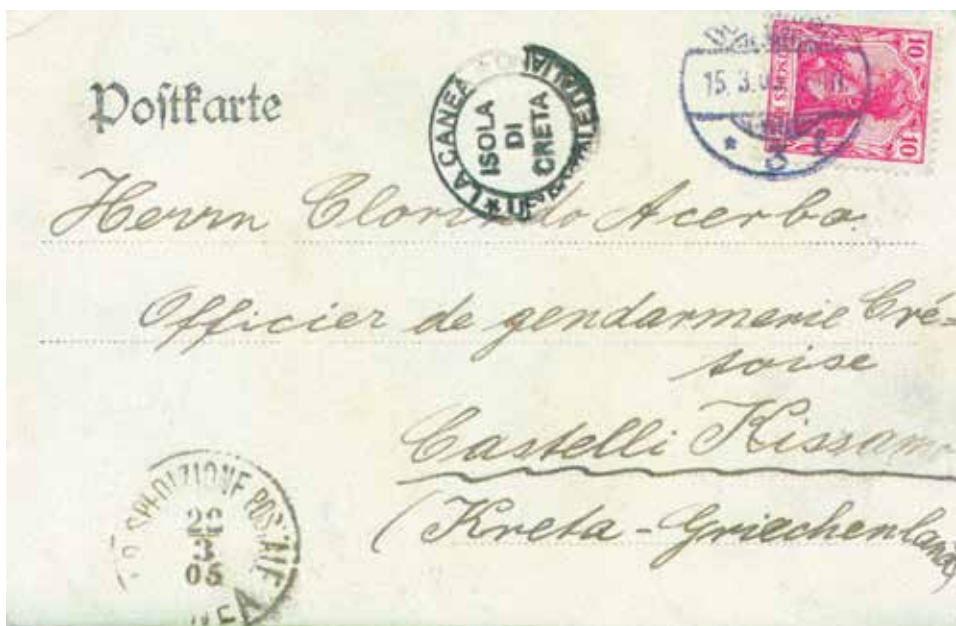 Postkarte
LA CANEA
ISOLA
DI
CRETA
15. 3. 0
10 10
Herrn Clorindo Acerbo.
Officier de gendarmerie Cré=
toise
Castelli Kissamo
(Kreta - Griechenland)
SPEDIZIONE POSTALE
22
3
05